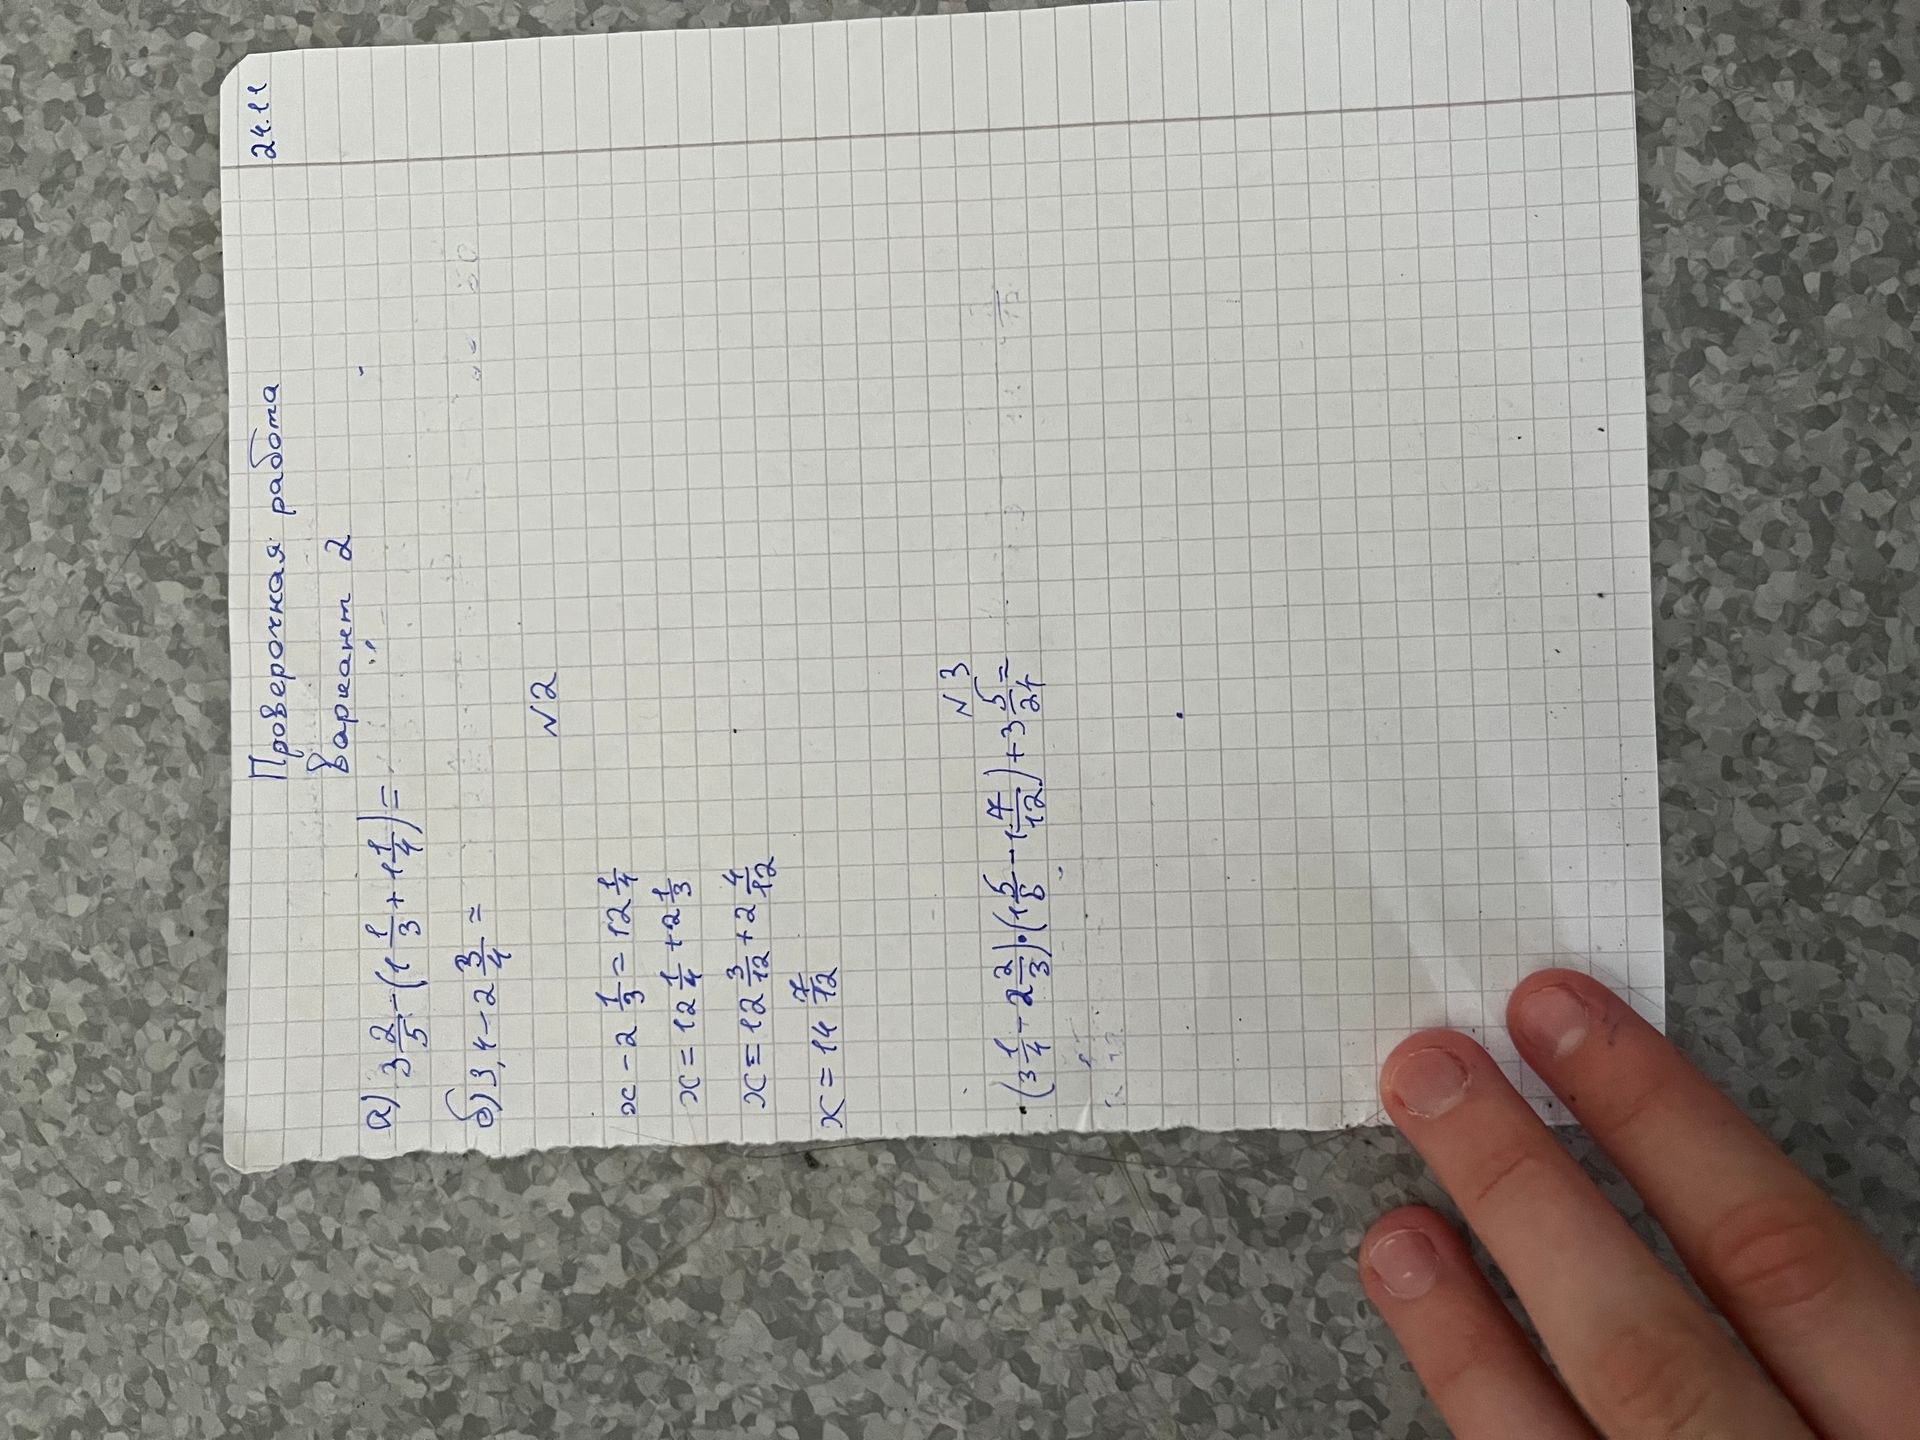 24.11
Проверочная работа
Вариант 2
а) 3 2/5 - (1 1/3 + 1 1/4) =
б) 3,4 - 2 3/4 =
№2
x - 2 1/3 = 12 1/4
x = 12 1/4 + 2 1/3
x = 12 3/12 + 2 4/12
x = 14 7/12
№3
(3 1/4 - 2 2/3) · (1 5/8 - 1 7/12) + 3 5/24 =